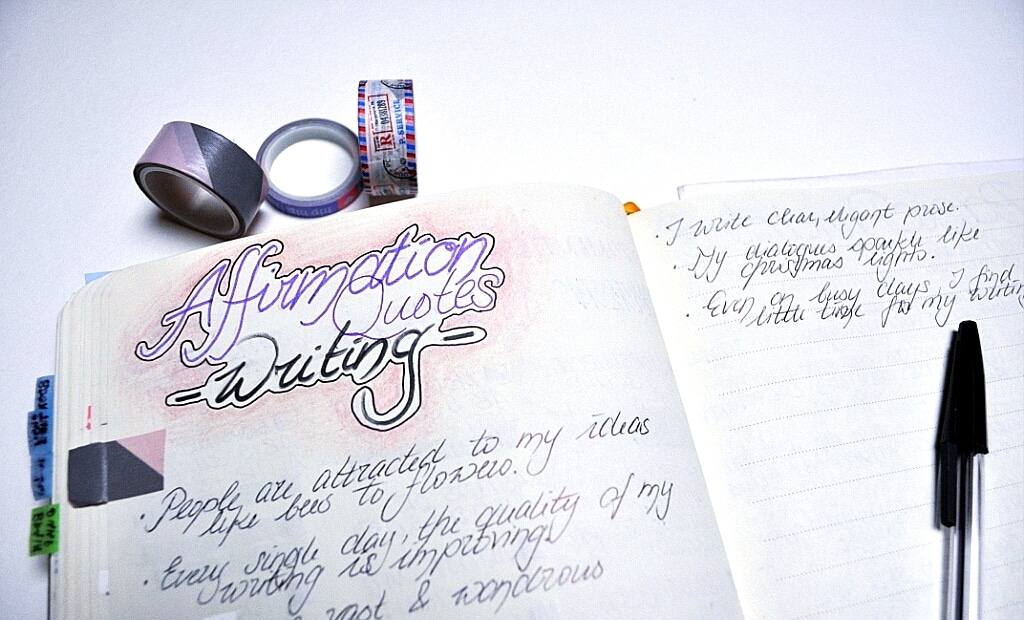 R
P. SERVICE
Affirmation
Quotes
- Writing -
• People are attracted to my ideas
like bees to flowers.
• Every single day, the quality of my
writing is improving
vast & wondrous
• I write clear, elegant prose.
• My dialogues sparkle like
christmas lights.
• Even on busy days, I find
little time for my writing